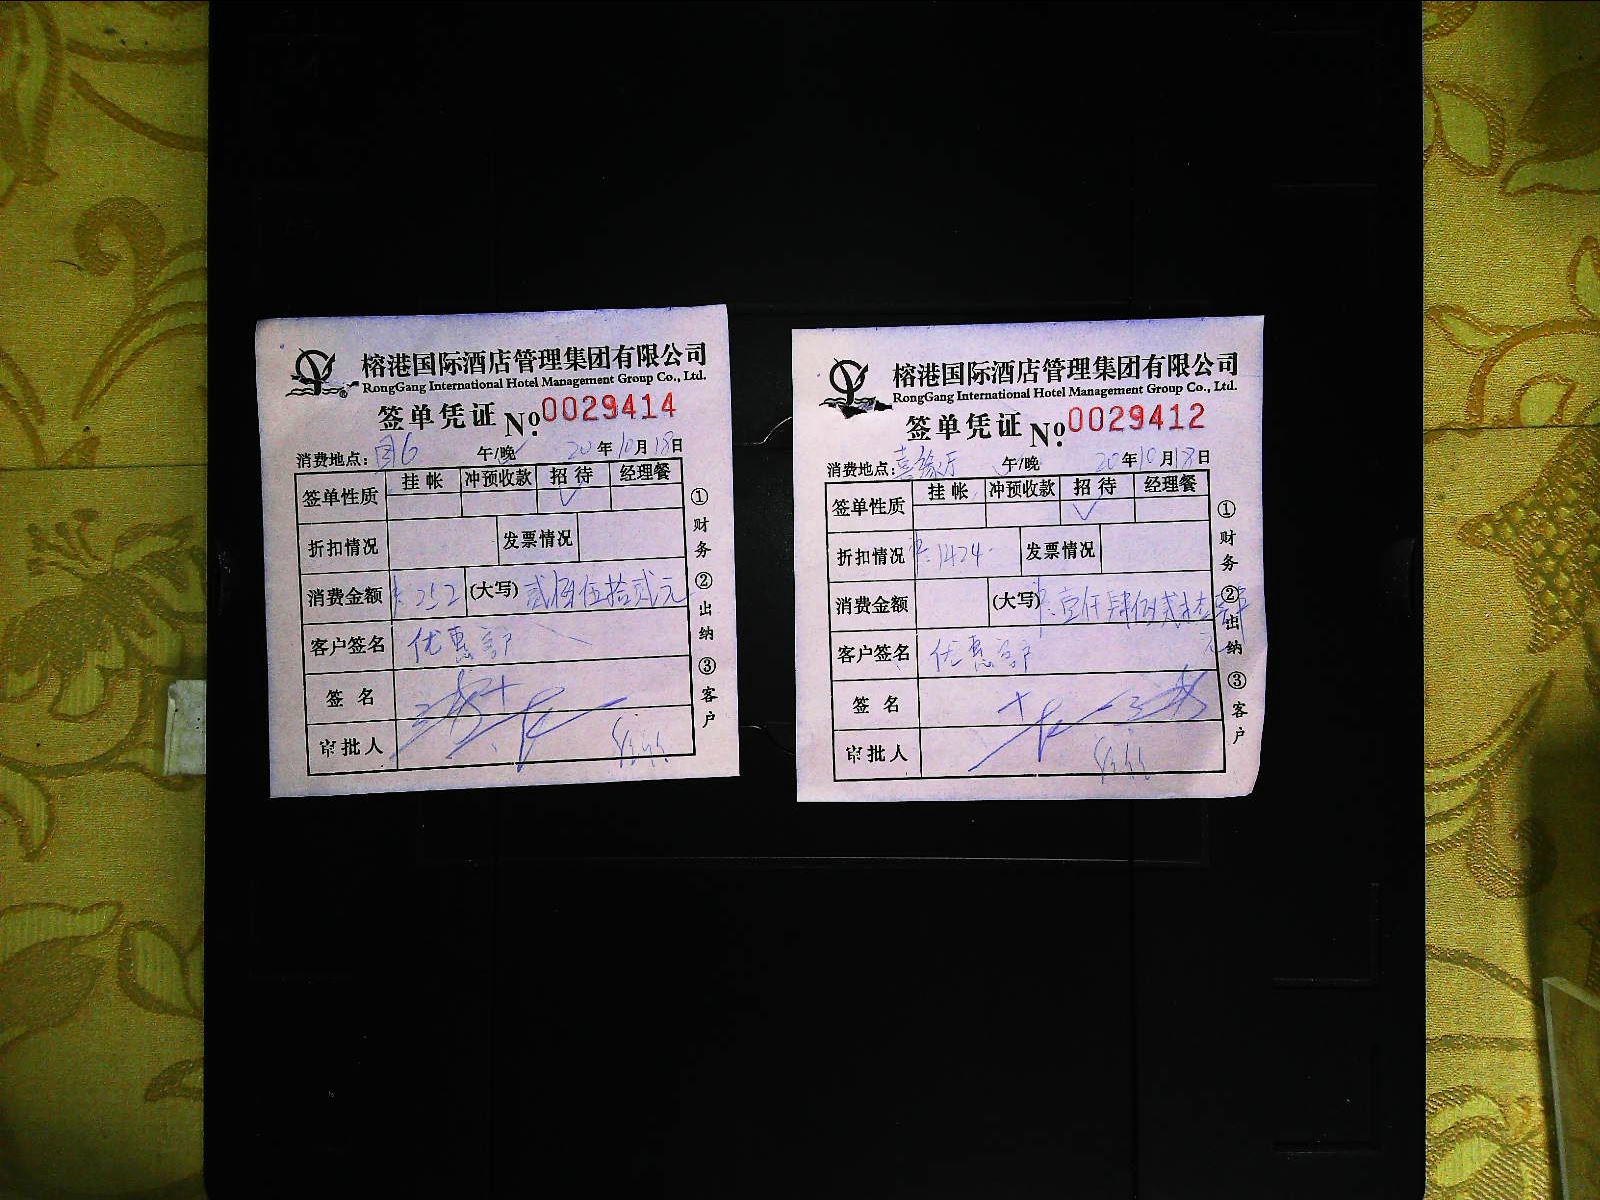 榕港国际酒店管理集团有限公司
RongGang International Hotel Management Group Co., Ltd.
签单凭证 No. 0029414
消费地点: 午/晚 20年10月18日
签单性质 挂帐 冲预收款 招待 经理餐
折扣情况 发票情况
消费金额 252 (大写) 贰佰伍拾贰元
客户签名 优惠
签名
审批人
①财务 ②出纳 ③客户
榕港国际酒店管理集团有限公司
RongGang International Hotel Management Group Co., Ltd.
签单凭证 No. 0029412
消费地点: 喜缘厅 午/晚 20年10月18日
签单性质 挂帐 冲预收款 招待 经理餐
折扣情况 1424 发票情况
消费金额 (大写) 壹仟肆佰贰拾肆元
客户签名 优惠
签名
审批人
①财务 ②出纳 ③客户